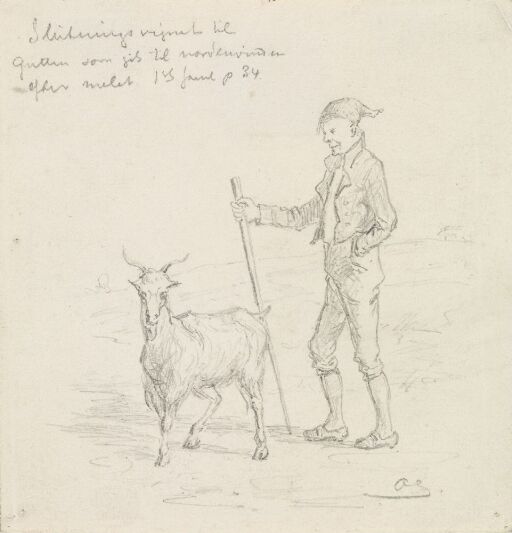 Slutningsvignet til
Gutten som gik til nordenvinden
efter melet. 1ste saml p 34